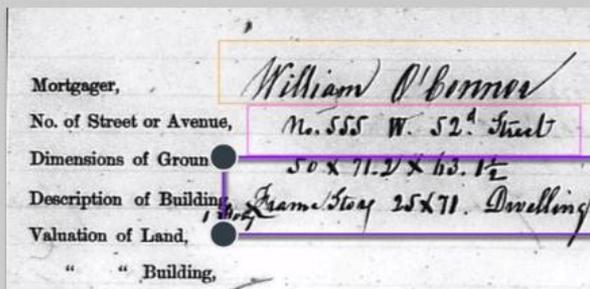 Mortgager, William O'Connor
No. of Street or Avenue, No. 555 W. 52d Street
Dimensions of Groun 50 X 71.2 X 63.1½
Description of Building, Frame Story 25X71. Dwelling
Valuation of Land,
“ “ Building,